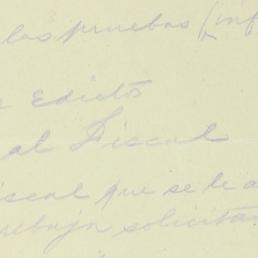 las pruebas (inf
Edicto
al Fiscal
iscal que se le a
rebaja solicita